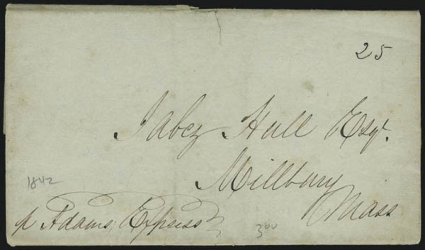 25
Jabez Hull Esqr.
Millbury
Mass
1842
p Adams Express
300